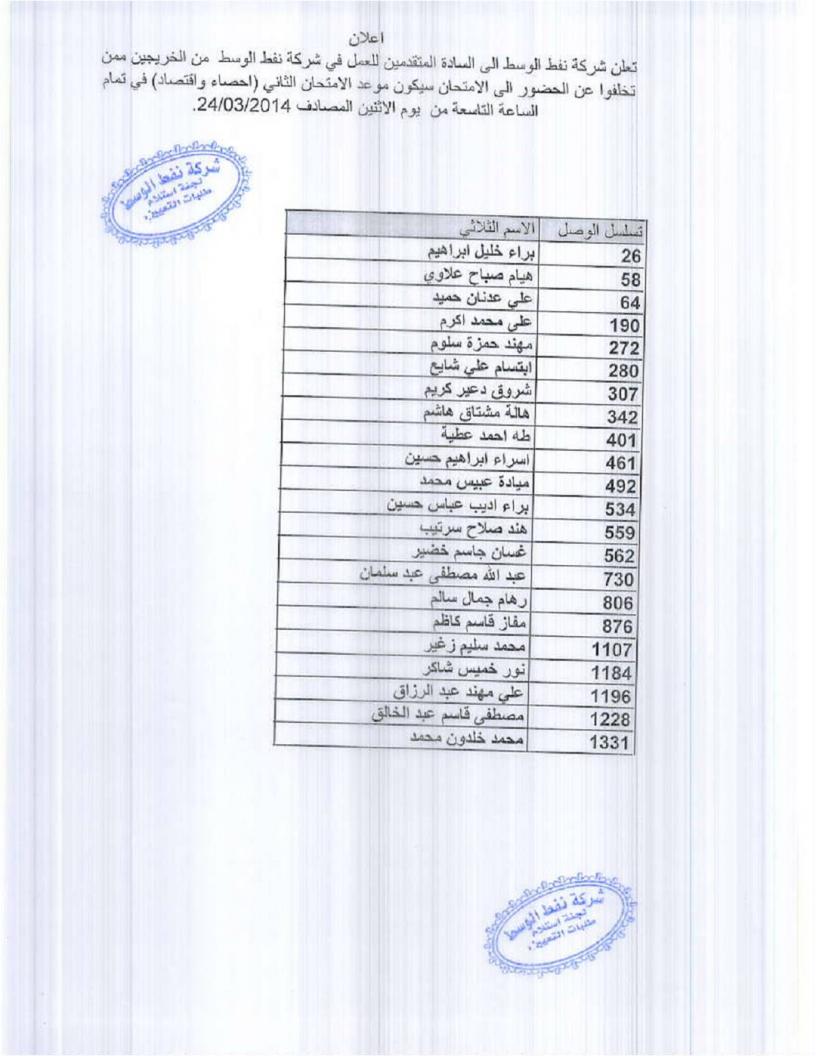 اعلان
تعلن شركة نفط الوسط الى السادة المتقدمين للعمل في شركة نفط الوسط من الخريجين ممن
تخلفوا عن الحضور الى الامتحان سيكون موعد الامتحان الثاني (احصاء واقتصاد) في تمام
الساعة التاسعة من يوم الاثنين المصادف 24/03/2014.
شركة نفط الوسط
لجنة استلام
طلبات التعيين
تسلسل الوصل الاسم الثلاثي
26 براء خليل ابراهيم
58 هيام صباح علاوي
64 علي عدنان حميد
190 علي محمد اكرم
272 مهند حمزة سلوم
280 ابتسام علي شايع
307 شروق دعير كريم
342 هالة مشتاق هاشم
401 طه احمد عطية
461 اسراء ابراهيم حسين
492 ميادة عبيس محمد
534 براء اديب عباس حسين
559 هند صلاح سرتيب
562 غسان جاسم خضير
730 عبد الله مصطفى عبد سلمان
806 رهام جمال سالم
876 مفاز قاسم كاظم
1107 محمد سليم زغير
1184 نور خميس شاكر
1196 علي مهند عبد الرزاق
1228 مصطفى قاسم عبد الخالق
1331 محمد خلدون محمد
شركة نفط الوسط
لجنة استلام
طلبات التعيين